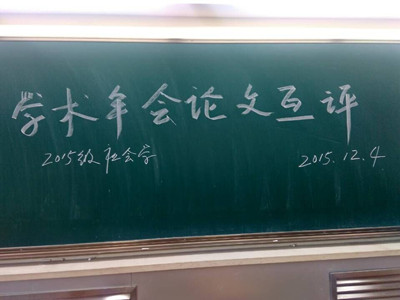 學术年会论文互评
2015级社会学
2015.12.4